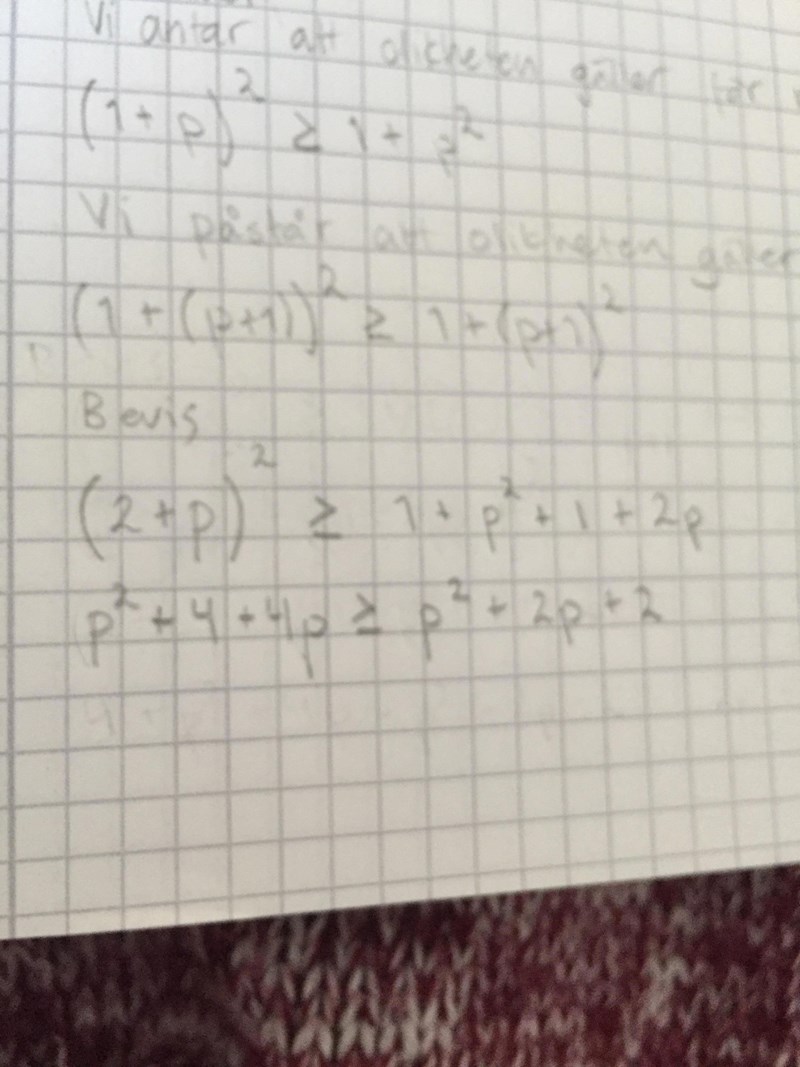 Vi antar att olikheten gäller för
(1+p)² ≥ 1+p²
Vi påstår att olikheten gäller
(1+(p+1))² ≥ 1+(p+1)²
Bevis
(2+p)² ≥ 1+p²+1+2p
p²+4+4p ≥ p²+2p+2